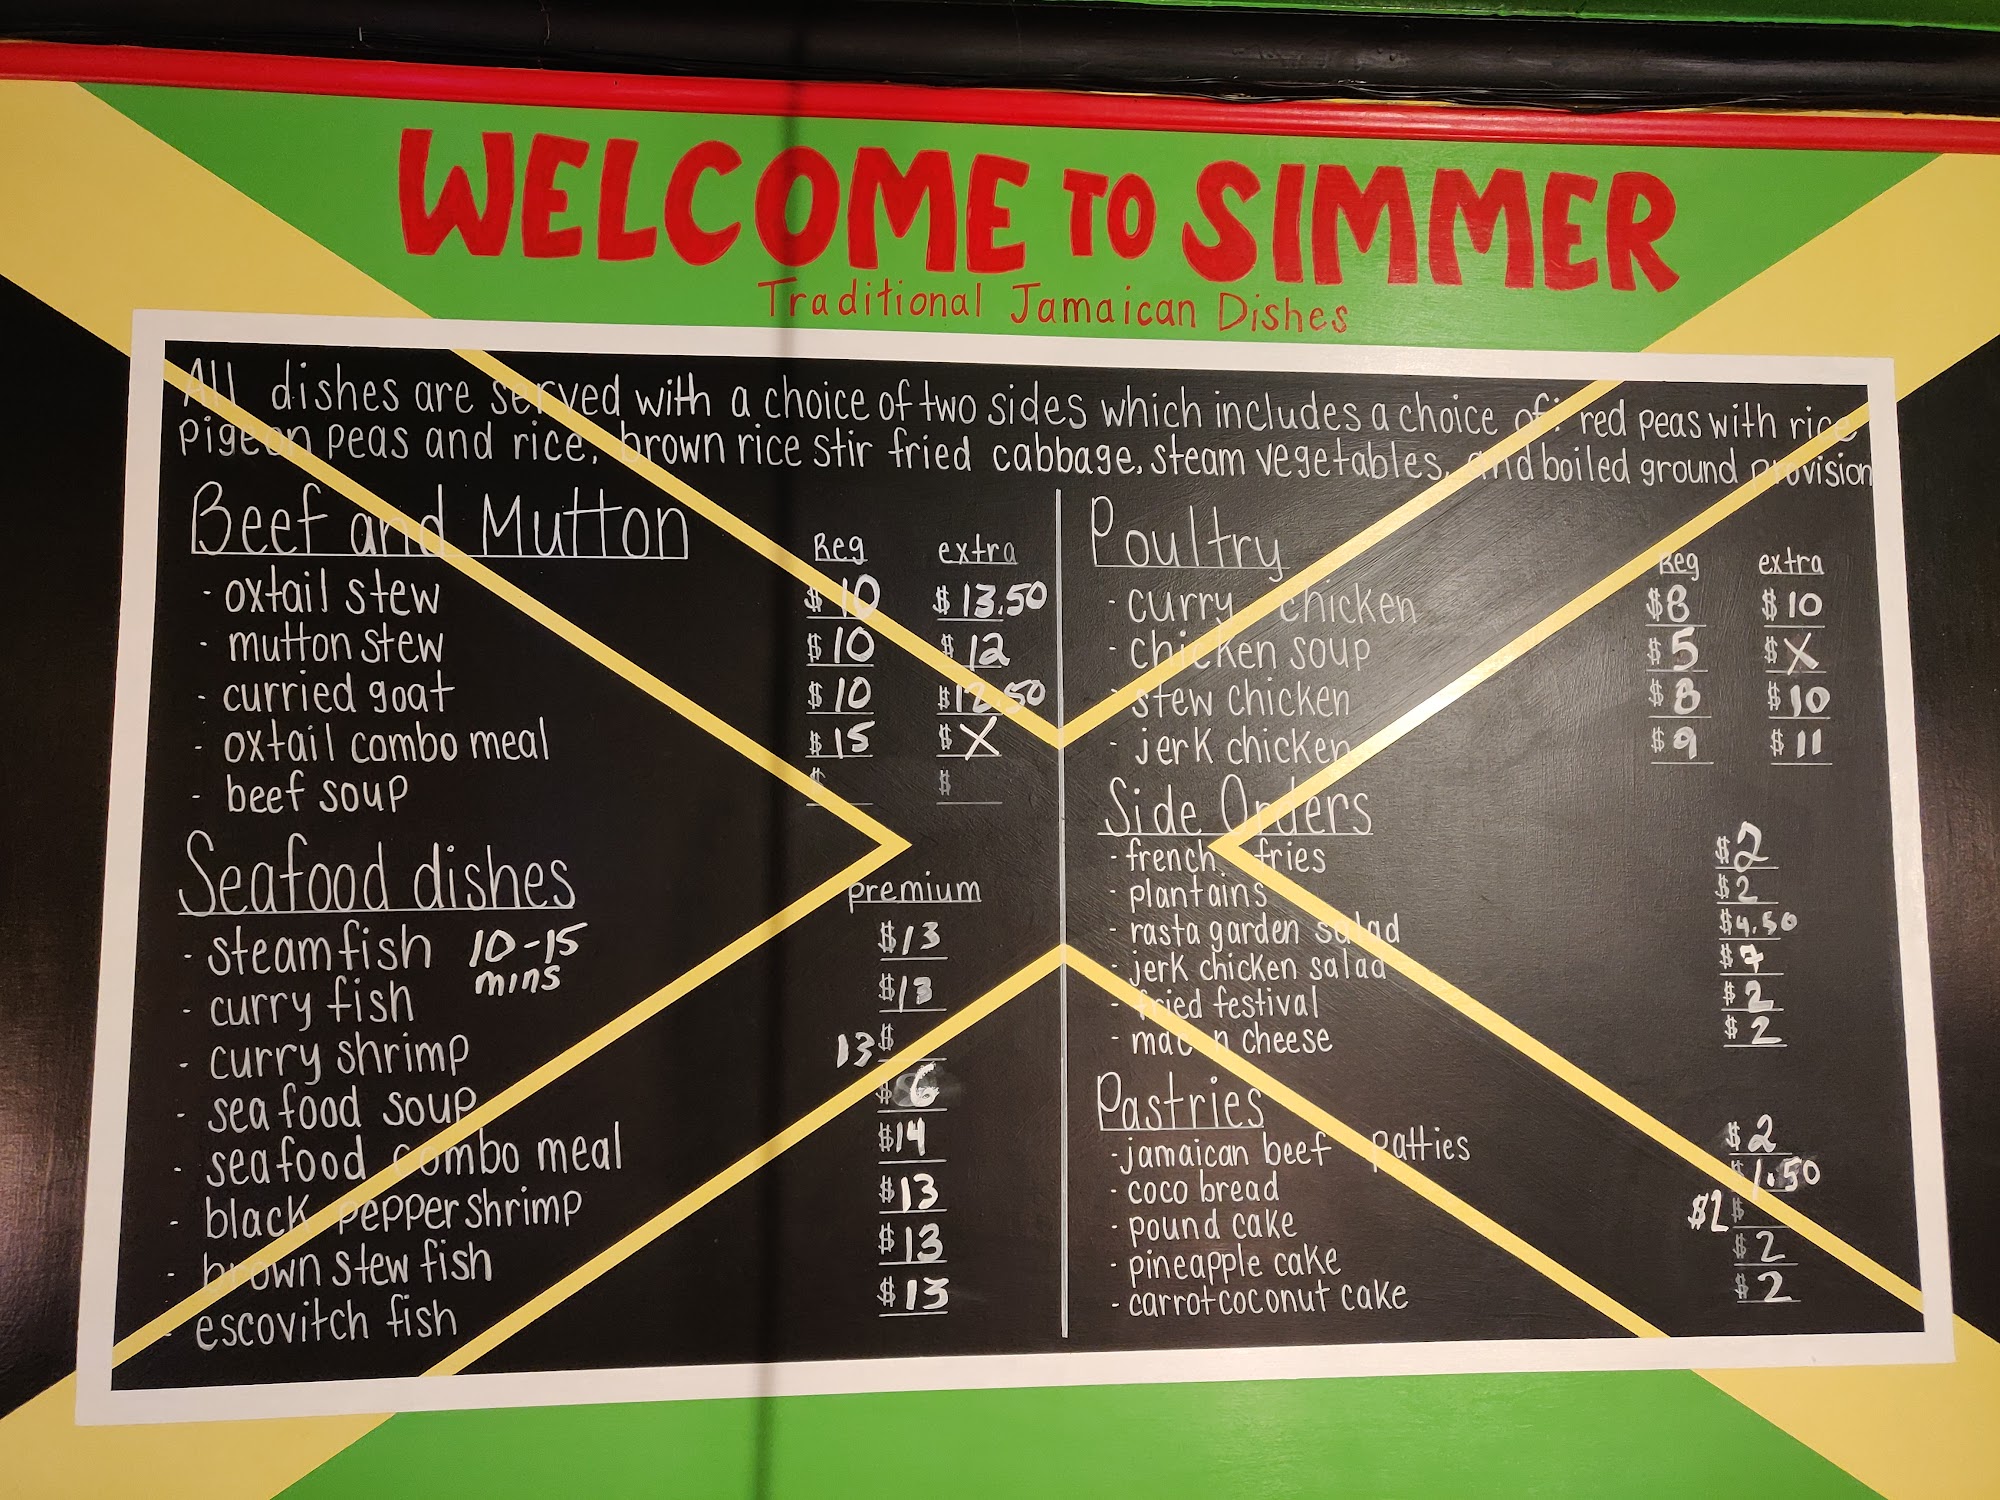 WELCOME TO SIMMER
Traditional Jamaican Dishes
All dishes are served with a choice of two sides which includes a choice of: red peas with rice
pigeon peas and rice, brown rice stir fried cabbage, steam vegetables, and boiled ground provision
Beef and Mutton
Reg extra
- oxtail stew $10 $13.50
- mutton stew $10 $12
- curried goat $10 $12.50
- oxtail combo meal $15 $X
- beef soup $ $
Seafood dishes
premium
- steamfish 10-15 mins $13
- curry fish $13
- curry shrimp 13$
- sea food soup $6
- seafood combo meal $14
- black pepper shrimp $13
- brown stew fish $13
- escovitch fish $13
Poultry
Reg extra
- curry chicken $8 $10
- chicken soup $5 $X
- stew chicken $8 $10
- jerk chicken $9 $11
Side Orders
- french fries $2
- plantains $2
- rasta garden salad $4.50
- jerk chicken salad $7
- fried festival $2
- mac n cheese $2
Pastries
- jamaican beef patties $2
- coco bread $1.50
- pound cake $2 $
- pineapple cake $2
- carrot coconut cake $2